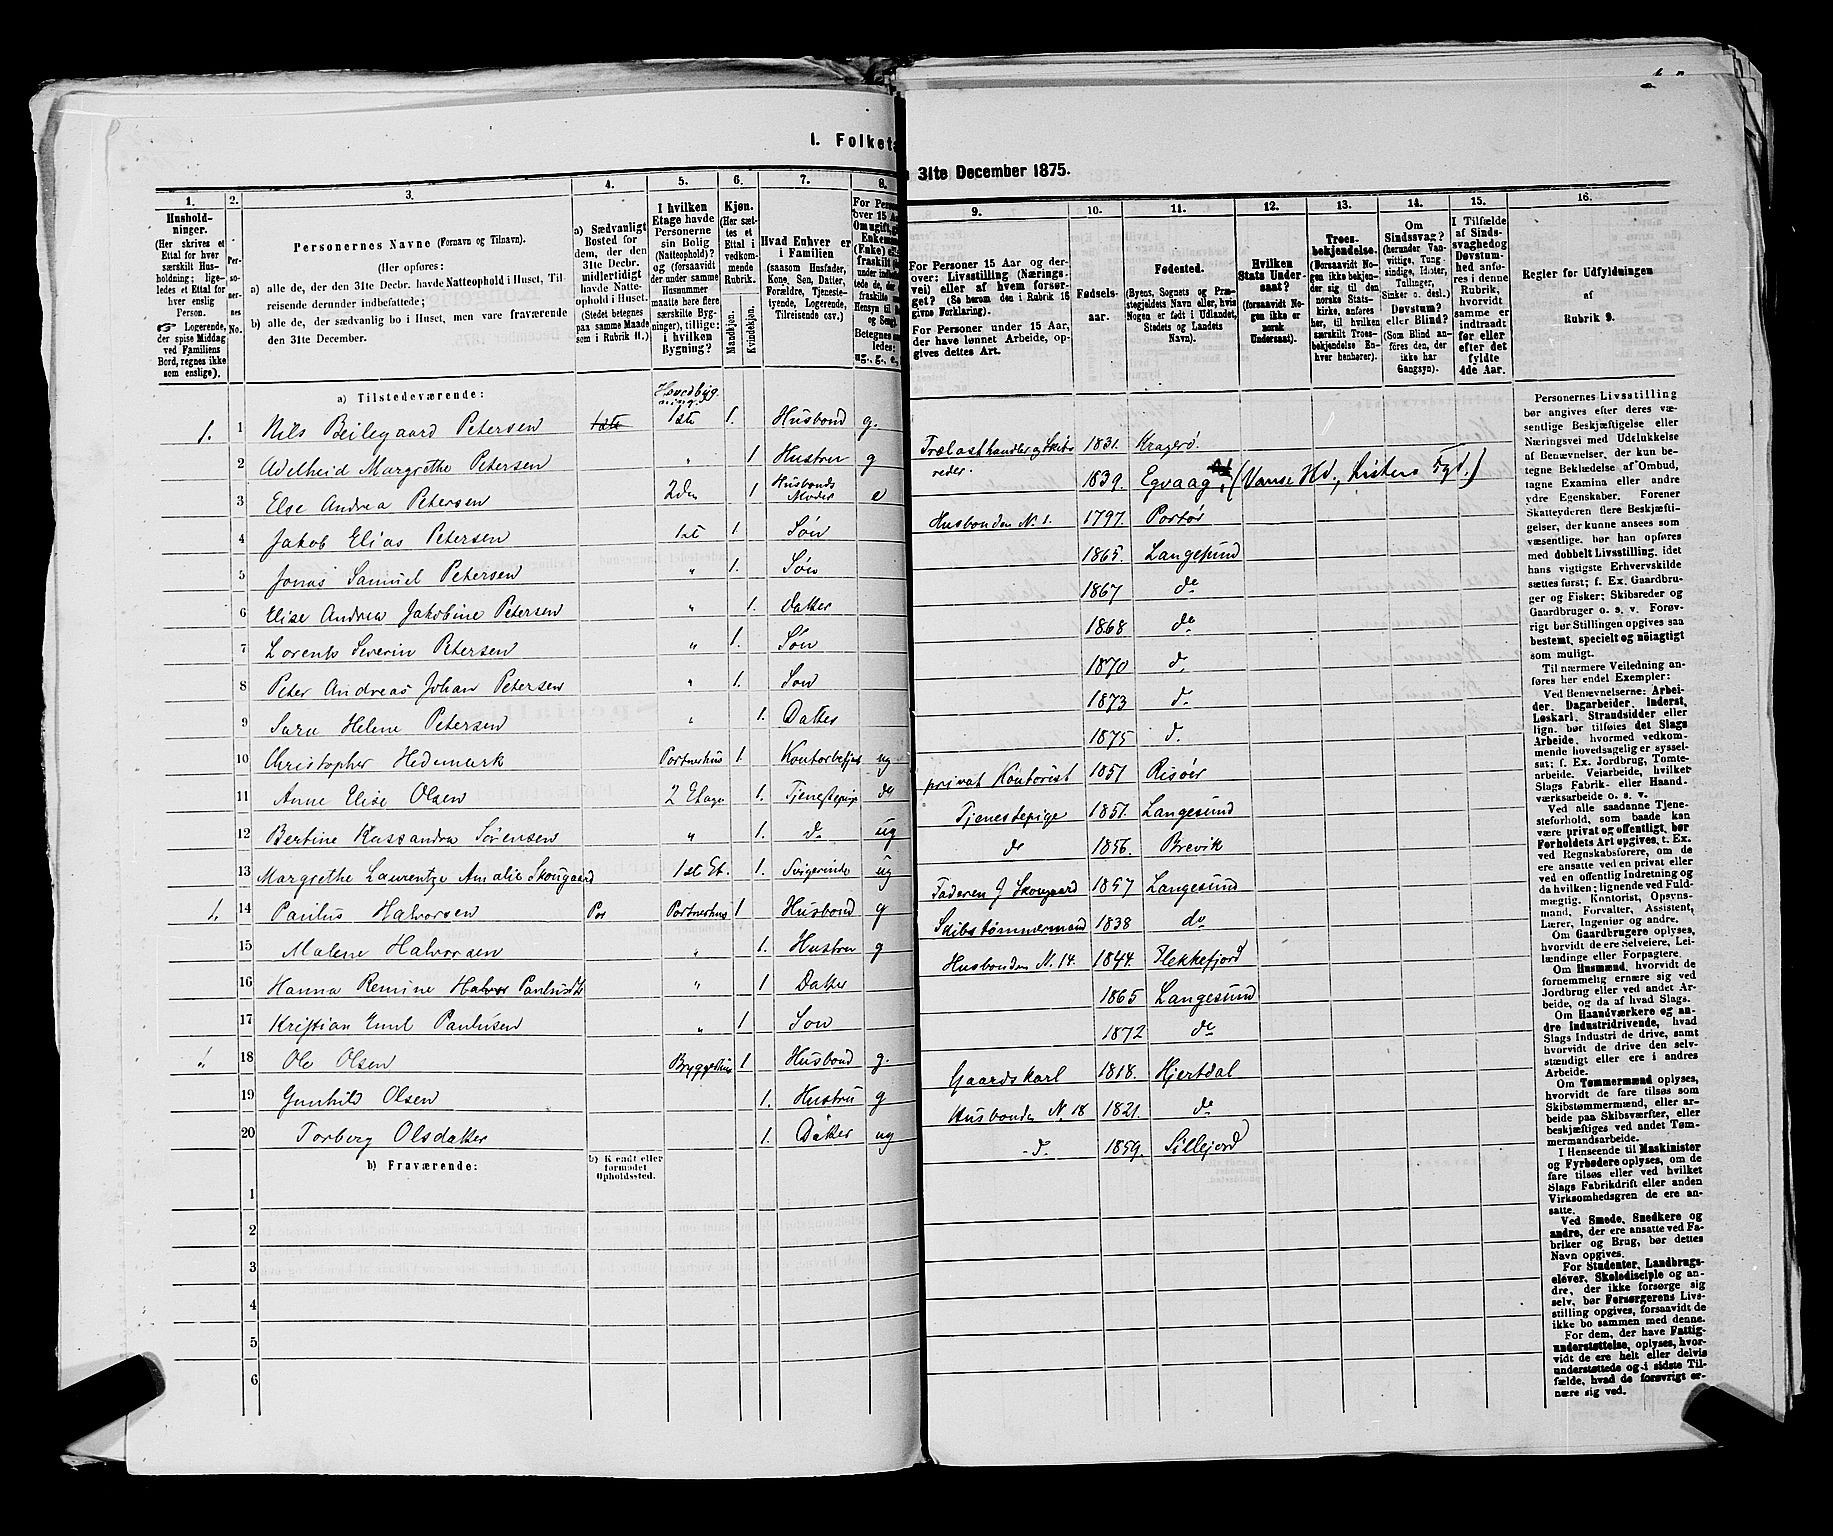 I. Folketæ
n 31te December 1875.
1. 2. 3. 4. 5. 6. 7. 8. 9. 10. 11. 12. 13. 14. 15. 16.
Husholdninger.
(Her skrives et Ettal for hver særskilt Husholdning; ligeledes et Ettal for hver enslig Person.
☞ Logerende, der spise Middag ved Familiens Bord, regnes ikke som enslige).
Personernes No.
Personernes Navne (Fornavn og Tilnavn).
(Her opføres:
a) alle de, der den 31te Decbr. havde Natteophold i Huset, Tilreisende derunder indbefattede;
b) alle de, der sædvanlig bo i Huset, men vare fraværende den 31te December.
a) Sædvanligt Bosted for dem, der den 31te Decbr. midlertidigt havde Natteophold i Huset. (Stedet betegnes paa samme Maade som i Rubrik 11.)
I hvilken Etage havde Personerne sin Bolig (Natteophold)? og (forsaavidt der under samme Husnummer maatte høre flere særskilte Bygninger), tillige: i hvilken Bygning?
Kjøn.
(Her sættes et Ettal i vedkommende Rubrik.
Mandkjøn. Kvindekjøn.
Hvad Enhver er i Familien
(saasom Husfader, Kone, Søn, Datter, Forældre, Tjenestetyende, Logerende, Tilreisende osv.)
For Personer 15 Aar og derover: Livsstilling (Næringsvei) eller af hvem forsørget? (Se herom den i Rubrik 16 givne Forklaring).
For Personer under 15 Aar, der have lønnet Arbeide, opgives dettes Art.
Fødselsaar.
Fødested.
(Byens, Sognets og Præstegjeldets Navn eller, hvis Nogen er født i Udlandet, Stedets og Landets Navn).
Hvilken Stats Undersaat?
(forsaavidt Nogen ikke er norsk Undersaat).
Troesbekjendelse.
(forsaavidt Nogen ikke bekjender sig til den norske Statskirke, anføres her, til hvilken særskilt Troesbekjendelse Enhver henhører).
Om Sindssvag? (herunder Vanvittige, Tungsindige, Idioter, Tallinger, Sinker o. desl.) Døvstum? eller Blind? (Som Blind anføres den, der ikke har Gangsyn).
I Tilfælde af Sindssvaghed og Døvstumhed anføres i denne Rubrik, hvorvidt samme er indtraadt før eller efter det fyldte 4de Aar.
Regler for Udfyldningen af Rubrik 9.
a) Tilstedeværende: Hovedbygning.
1. 1 Nils Beilegaard Petersen 1ste 1ste 1. Husbond g. Trælasthandler og Skibsreder. 1831. Kragerø.
2 Adelheid Margrethe Petersen " 1 Hustru g 1839. Egvaag, (Vanse Hd., Listers Fgd.)
3 Else Andrea Petersen 2den 1 Husbonds Moder e Husbonden N. 1. 1797. Portør
4 Jakob Elias Petersen 1ste 1 Søn 1865. Langesund
5 Jonas Samuel Petersen " 1. Søn 1867 do
6 Elise Andrea Jakobine Petersen " 1. Datter 1868 do
7 Lorents Severin Petersen " 1. Søn 1870 d.
8 Peter Andreas Johan Petersen " 1. Søn 1873 d.
9 Sara Helene Petersen " 1. Datter 1875 d.
10 Christopher Hedemark Portnerhus 1. Kontorbetjent ug privat Kontorist 1851 Risøer
11 Anne Elise Olsen 2 Etage 1. Tjenestepige do Tjenestepige 1851. Langesund
12 Bertine Kassandra Sørensen " 1. do ug do 1856. Brevik
13 Margrethe Laurentze Amalie Skougaard 1st Et. 1. Svigerinde ug Faderen J Skougaard 1857 Langesund
1. 14 Paulus Halvorsen Portnerhus 1 Husbond g Skibstømmermand 1838 do
15 Malene Halvorsen " 1. Hustru g Husbonden N. 14. 1844. Flekkefjord
16 Hanna Remine Paulusdtr " 1 Datter 1865 Langesund
17 Kristian Emil Paulusen " 1 Søn 1872 do
1. 18 Ole Olsen Bryggerhus 1 Husbond g. Gaardskarl 1818. Hjertdal
19 Gunhild Olsen 1. Hustru g Husbonden N. 18 1821. do
20 Torberg Olsdatter 1. Datter ug d. 1859. Sillejord
b) Fraværende: b) Kjendt eller formodet Opholdssted.
1
2
3
4
5
6
Personernes Livsstilling bør angives efter deres væsentlige Beskjæftigelse eller Næringsvei med Udelukkelse af Benævnelser, der kun betegne Beklædelse af Ombud, tagne Examina eller andre ydre Egenskaber. Forener Skatteyderen flere Beskjæftigelser, der kunne ansees som væsentlige, bør han opføres med dobbelt Livsstilling, idet hans vigtigste Erhvervskilde sættes først; f. Ex. Gaardbruger og Fisker; Skibsreder og Gaardbruger o. s. v. Forøvrigt bør Stillingen opgives saa bestemt, specielt og nøiagtigt som muligt.
Til nærmere Veiledning anføres her endel Exempler:
Ved Benævnelserne: Arbeider, Dagarbeider, Inderst, Løskarl, Strandsidder eller lign. bør tilføies det Slags Arbeide, hvormed vedkommende hovedsagelig er sysselsat; f. Ex. Jordbrug, Tomtearbeide, Veiarbeide, hvilket Slags Fabrik- eller Haandværksarbeide o. s. v.
Ved alle saadanne Tjenesteforhold, som baade kan være privat og offentligt, bør Forholdets Art opgives, t. Ex. ved Regnskabsførere, om de ere ansatte ved en privat eller ved en offentlig Indretning og da hvilken; lignende ved Fuldmægtig, Kontorist, Opsynsmand, Forvalter, Assistent, Lærer, Ingeniør og andre.
Om Gaardbrugere oplyses, hvorvidt de ere Selveiere, Leilændinge eller Forpagtere.
Om Husmænd, hvorvidt de fornemmelig ernære sig ved Jordbrug eller ved andet Arbeide, og da af hvad Slags.
Om Haandværkere og andre Industridrivende, hvad Slags Industri de drive, samt hvorvidt de drive den selvstændigt eller ere i andres Arbeide.
Om Tømmermænd oplyses, hvorvidt de fare tilsøs som Skibstømmermænd, eller arbeide paa Skibsværfter, eller beskjæftiges ved andet Tømmermandsarbeide.
I Henseende til Maskinister og Fyrbødere oplyses, om de fare tilsøs eller ved hvilket Slags Fabrikdrift eller anden Virksomhedsgren de ere ansatte.
Ved Smede, Snedkere og andre, der ere ansatte ved Fabriker og Brug, bør dettes Navn opgives.
For Studenter, Landbrugselever, Skoledisciple og andre, der ikke forsørge sig selv, bør Forsørgerens Livsstilling opgives, forsaavidt de ikke bo sammen med denne.
For dem, der have Fattigunderstøttelse, oplyses, hvorvidt de ere helt eller delvis understøttede og i sidste Tilfælde, hvad de forøvrigt ernære sig ved.